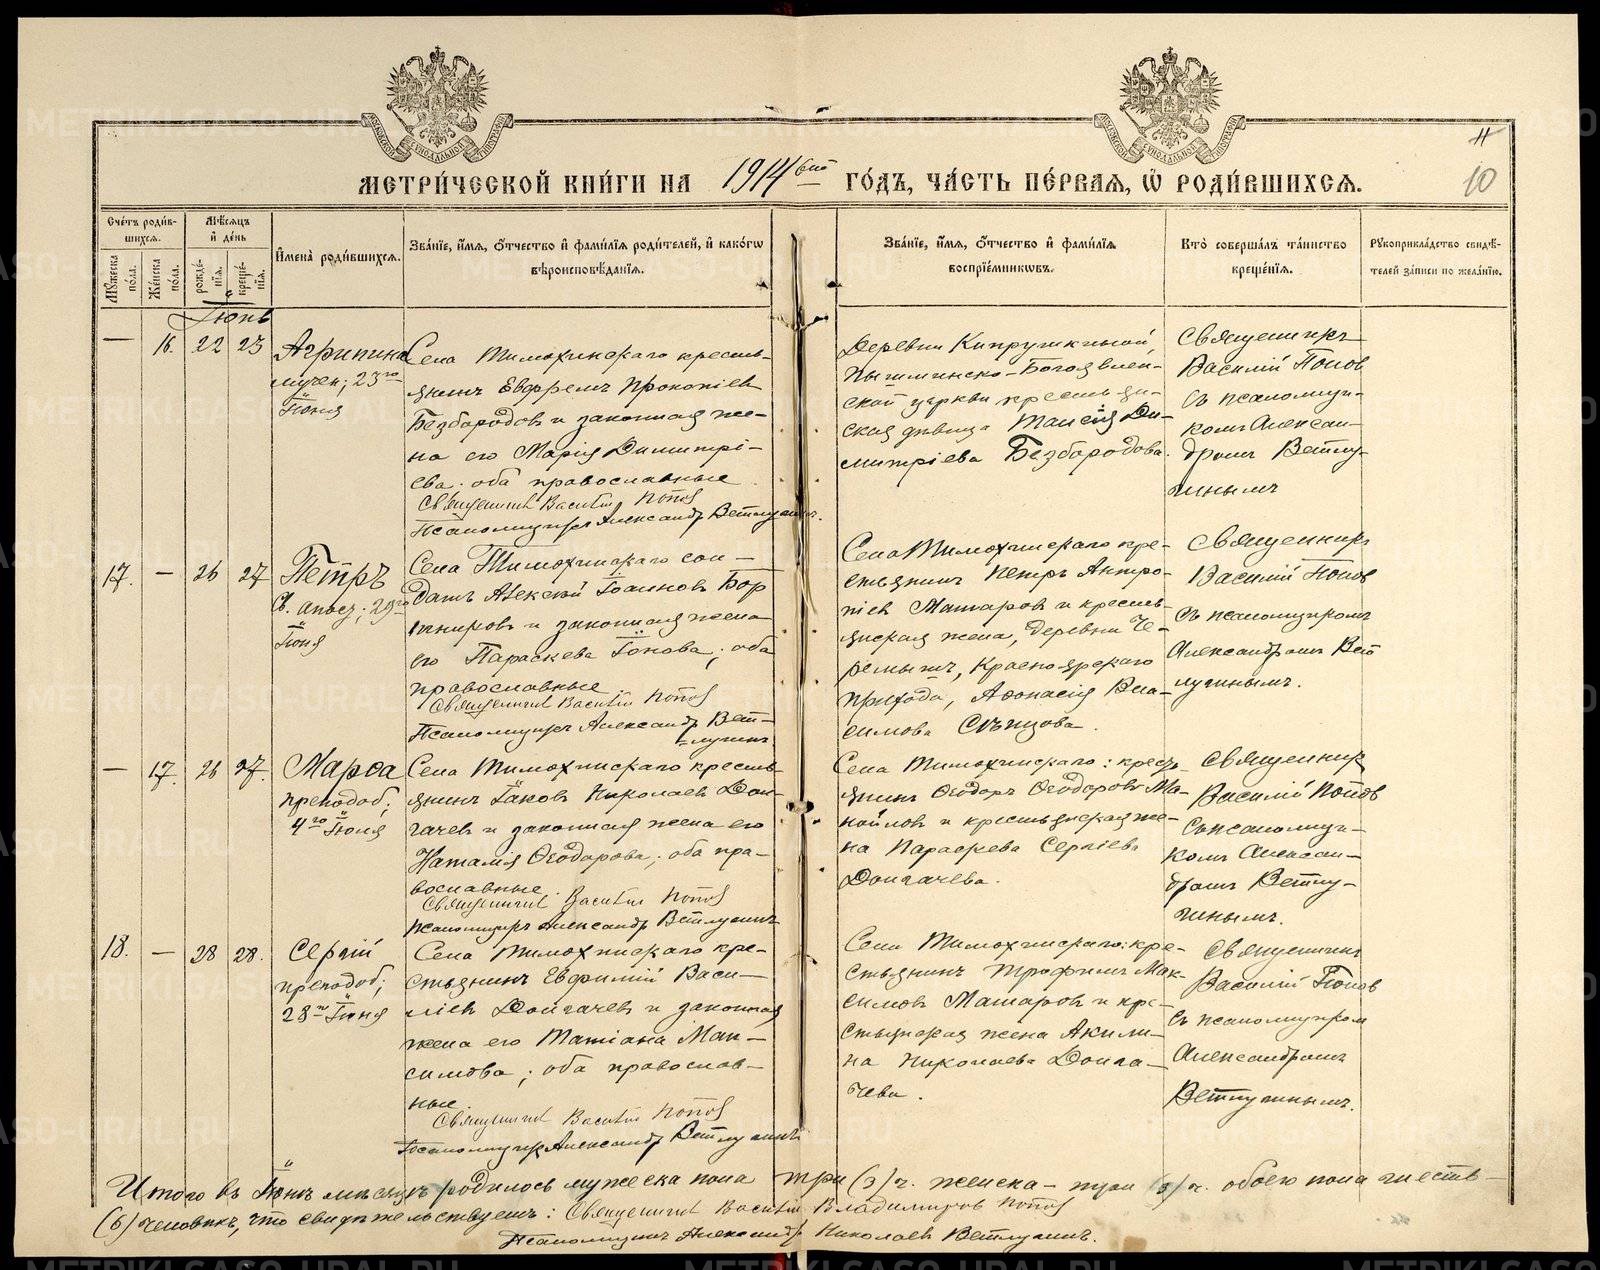 МЕТРИ́ЧЕСКОЙ КНИ́ГИ НА 1914 ый ГО́ДЪ, ЧА́СТЬ ПЕ́РВАЯ, Ѿ РОДИ́ВШИХСЯ.
10
Сче́тъ роди́в-
шихся.
Мѣ́сяцъ
и҆ де́нь
И҆мена̀ роди́вшихся.
Зва́нїе, и҆́мя, ѻ҆́тчество и҆ фамѝлїѧ роди́телей, и҆ како́гѡ
вѣроисповѣ́данїѧ.
Зва́нїе, и҆́мя, ѻ҆́тчество и҆ фами́лїѧ
воспрїе́мникѡвъ.
Кто̀ соверша́лъ та́инство
креще́нїѧ.
Рꙋкоприкла́дство свидѣ́-
телей за́писи по жела́нїю.
Мꙋ́жеска по́ла.
Же́нска по́ла.
рожде́-нїѧ.
креще́-нїѧ.
Іюнь
— 16. 22 23
Агрипина
мучен; 23го
Іюня
Села Тимохинскаго кресть-
янинъ Евфремъ Прокопіев
Безбородовъ и законная же-
на его Марія Димитрі-
ева. оба православные.
Священникъ Василій Попов
Псаломщикъ Александр Ветлугинъ.
Деревни Кипрушкиной,
Пышминско-Богоявлен-
ской церкви крестьян-
ская девица Таисія Ди-
митріева Безбородова.
Священникъ
Василій Попов
съ псаломщи-
комъ Алексан-
дромъ Ветлу-
гинымъ
17. — 26 27
Петръ
Св. апост; 29го
Іюня
Села Тимохинскаго сол-
датъ Алексій Іоанновъ Бор
и законная жена
его Параскева Іонова; оба
православные
Священникъ Василій Попов
Псаломщикъ Александр Вет-
=лугинъ
Села Тимохинскаго кре-
стьянинъ Петръ Антро-
піев Машаровъ и кресть-
янская жена, деревни Че-
ремышъ, Красноярскаго
прихода, Аѳанасія Вла-
симова
Священникъ
Василій Попов
съ псаломщикомъ
Александромъ Вет
лугинымъ.
— 17. 26 27.
Марѳа
преподоб;
4го Іюля
Села Тимохинскаго кресть-
янинъ Іаковъ Николаев Дол-
гачев и законная жена его
Наталія Ѳеодорова; оба пра-
вославные.
Священникъ Василій Попов
Псаломщикъ Александр Ветлугинъ
Села Тимохинскаго: кресть-
янинъ Ѳеодоръ Ѳеодоровъ Ма-
нойловъ и крестьянская же-
на Параскева Сергіева
Долгачева.
Священник
Василій Попов
съ псаломщи-
комъ Алексан-
дромъ Ветлу-
гинымъ.
18. — 28 28.
Сергій
преподоб;
28го Іюня
Села Тимохинскаго кре-
стьянинъ Евфимій Васи-
ліев Долгачев и законная
жена его Татіана Мак-
симова; оба православ-
ные.
Священникъ Василій Попов
Псаломщикъ Александр Ветлугинъ
Села Тимохинскаго: кре-
стьянинъ Трофимъ Мак-
симовъ Машаровъ и кре-
стьянская жена Акили-
на Николаева Долга-
чева.
Священникъ
Василій Попов
съ псаломщиком
Александромъ
Ветлугинымъ.
Итого въ Іюнѣ мѣсяцѣ родилось мужеска пола три (3) ч. женска — три (3) ч. обоего пола шесть —
(6) человѣкъ, что свидѣтельствуемъ: Священникъ Василій Владимировъ Попов
Псаломщикъ Александр Николаев Ветлугинъ.